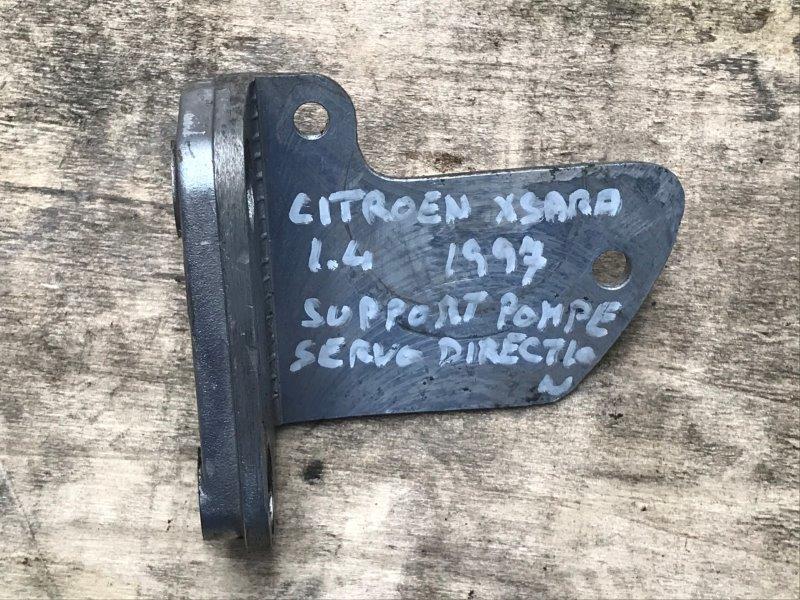 CITROEN XSARA
1.4 1997
SUPPORT POMPE
SERVO DIRECTIO
N